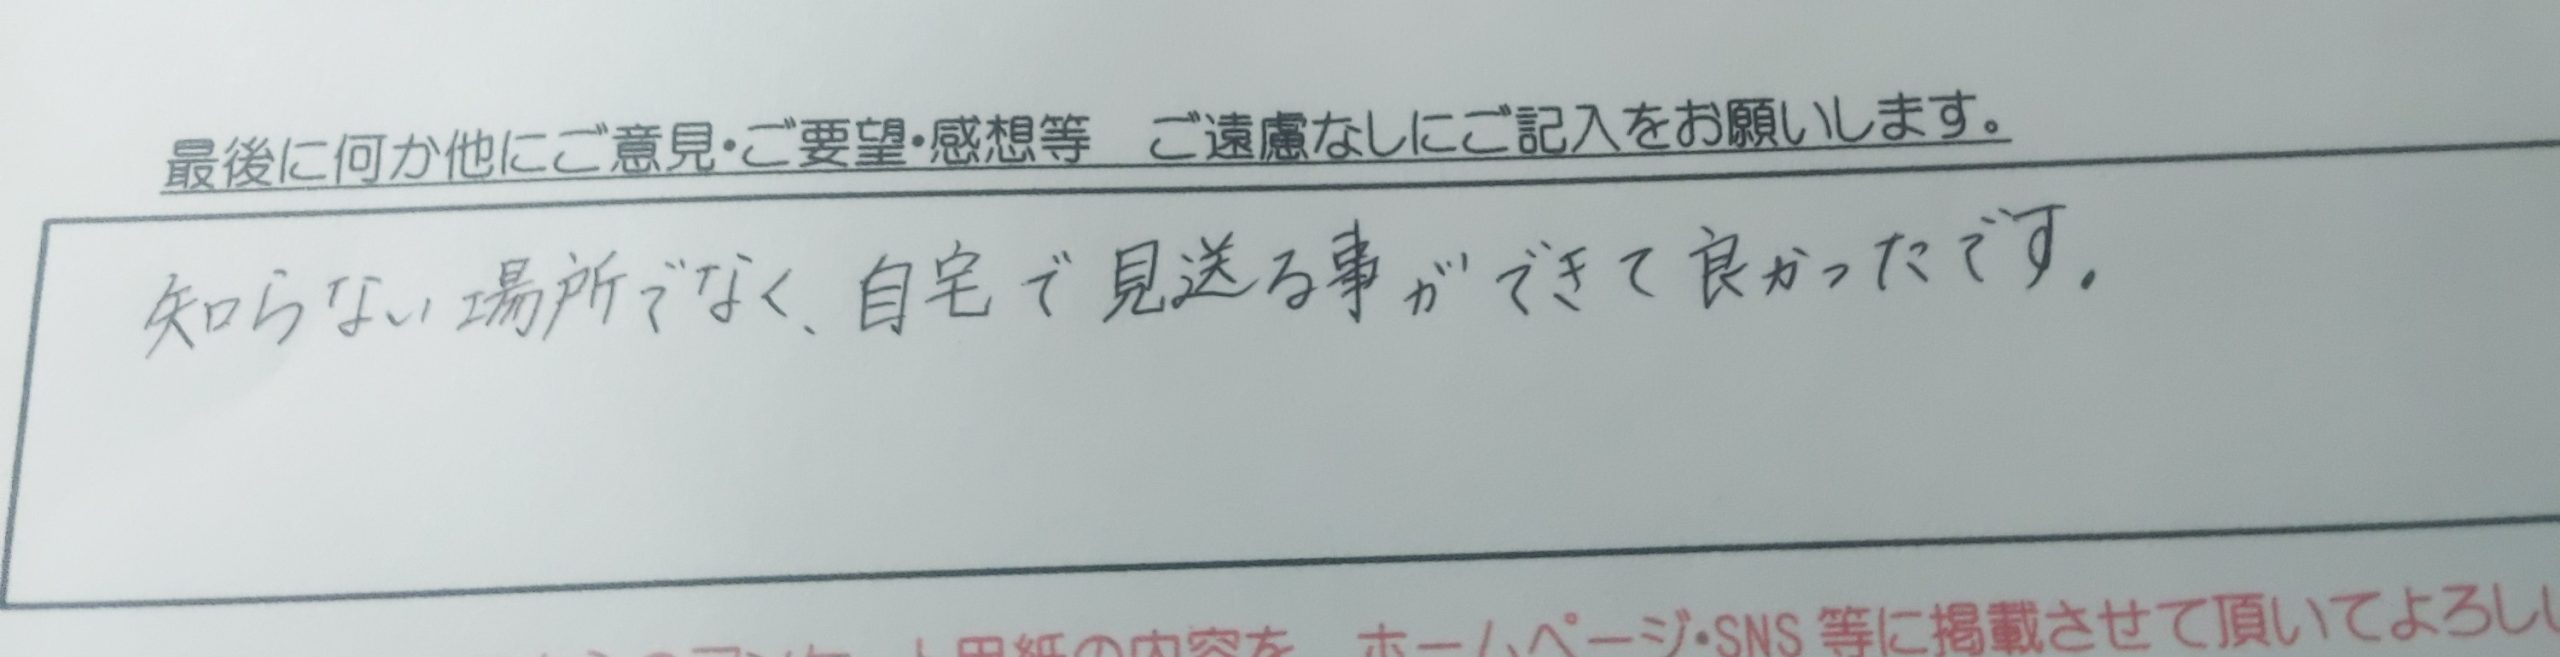 最後に何か他にご意見・ご要望・感想等　ご遠慮なしにご記入をお願いします。
知らない場所でなく、自宅で見送る事ができて良かったです.
アンケート用紙の内容を　ホームページ・SNS 等に掲載させて頂いてよろし